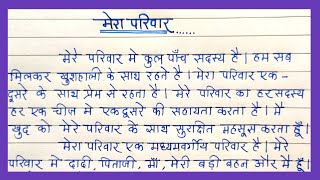 मेरा परिवार......
मेरे परिवार मे कुल पाँच सदस्य है। हम सब
मिलकर खुशहाली के साथ रहते है। मेरा परिवार एक-
दूसरे के साथ प्रेम से रहता है। मेरे परिवार का हर सदस्य
हर एक चीज़ मे एक दूसरे की सहायता करता है। मै
खुद को मेरे परिवार के साथ सुरक्षित महसूस करता हूँ।
मेरा परिवार एक मध्यमवर्गीय परिवार है। मेरे
परिवार मे दादी, पिताजी, माँ, मेरी बड़ी बहन और मै हूँ।